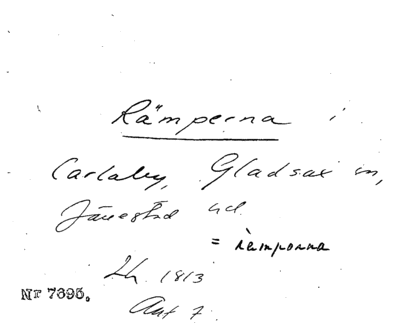 Rämperna i
Carlaby, Gladsax sn,
Järrestad hd.
= ràmporna
Lh. 1813
Akt 7.
Nr 7395.